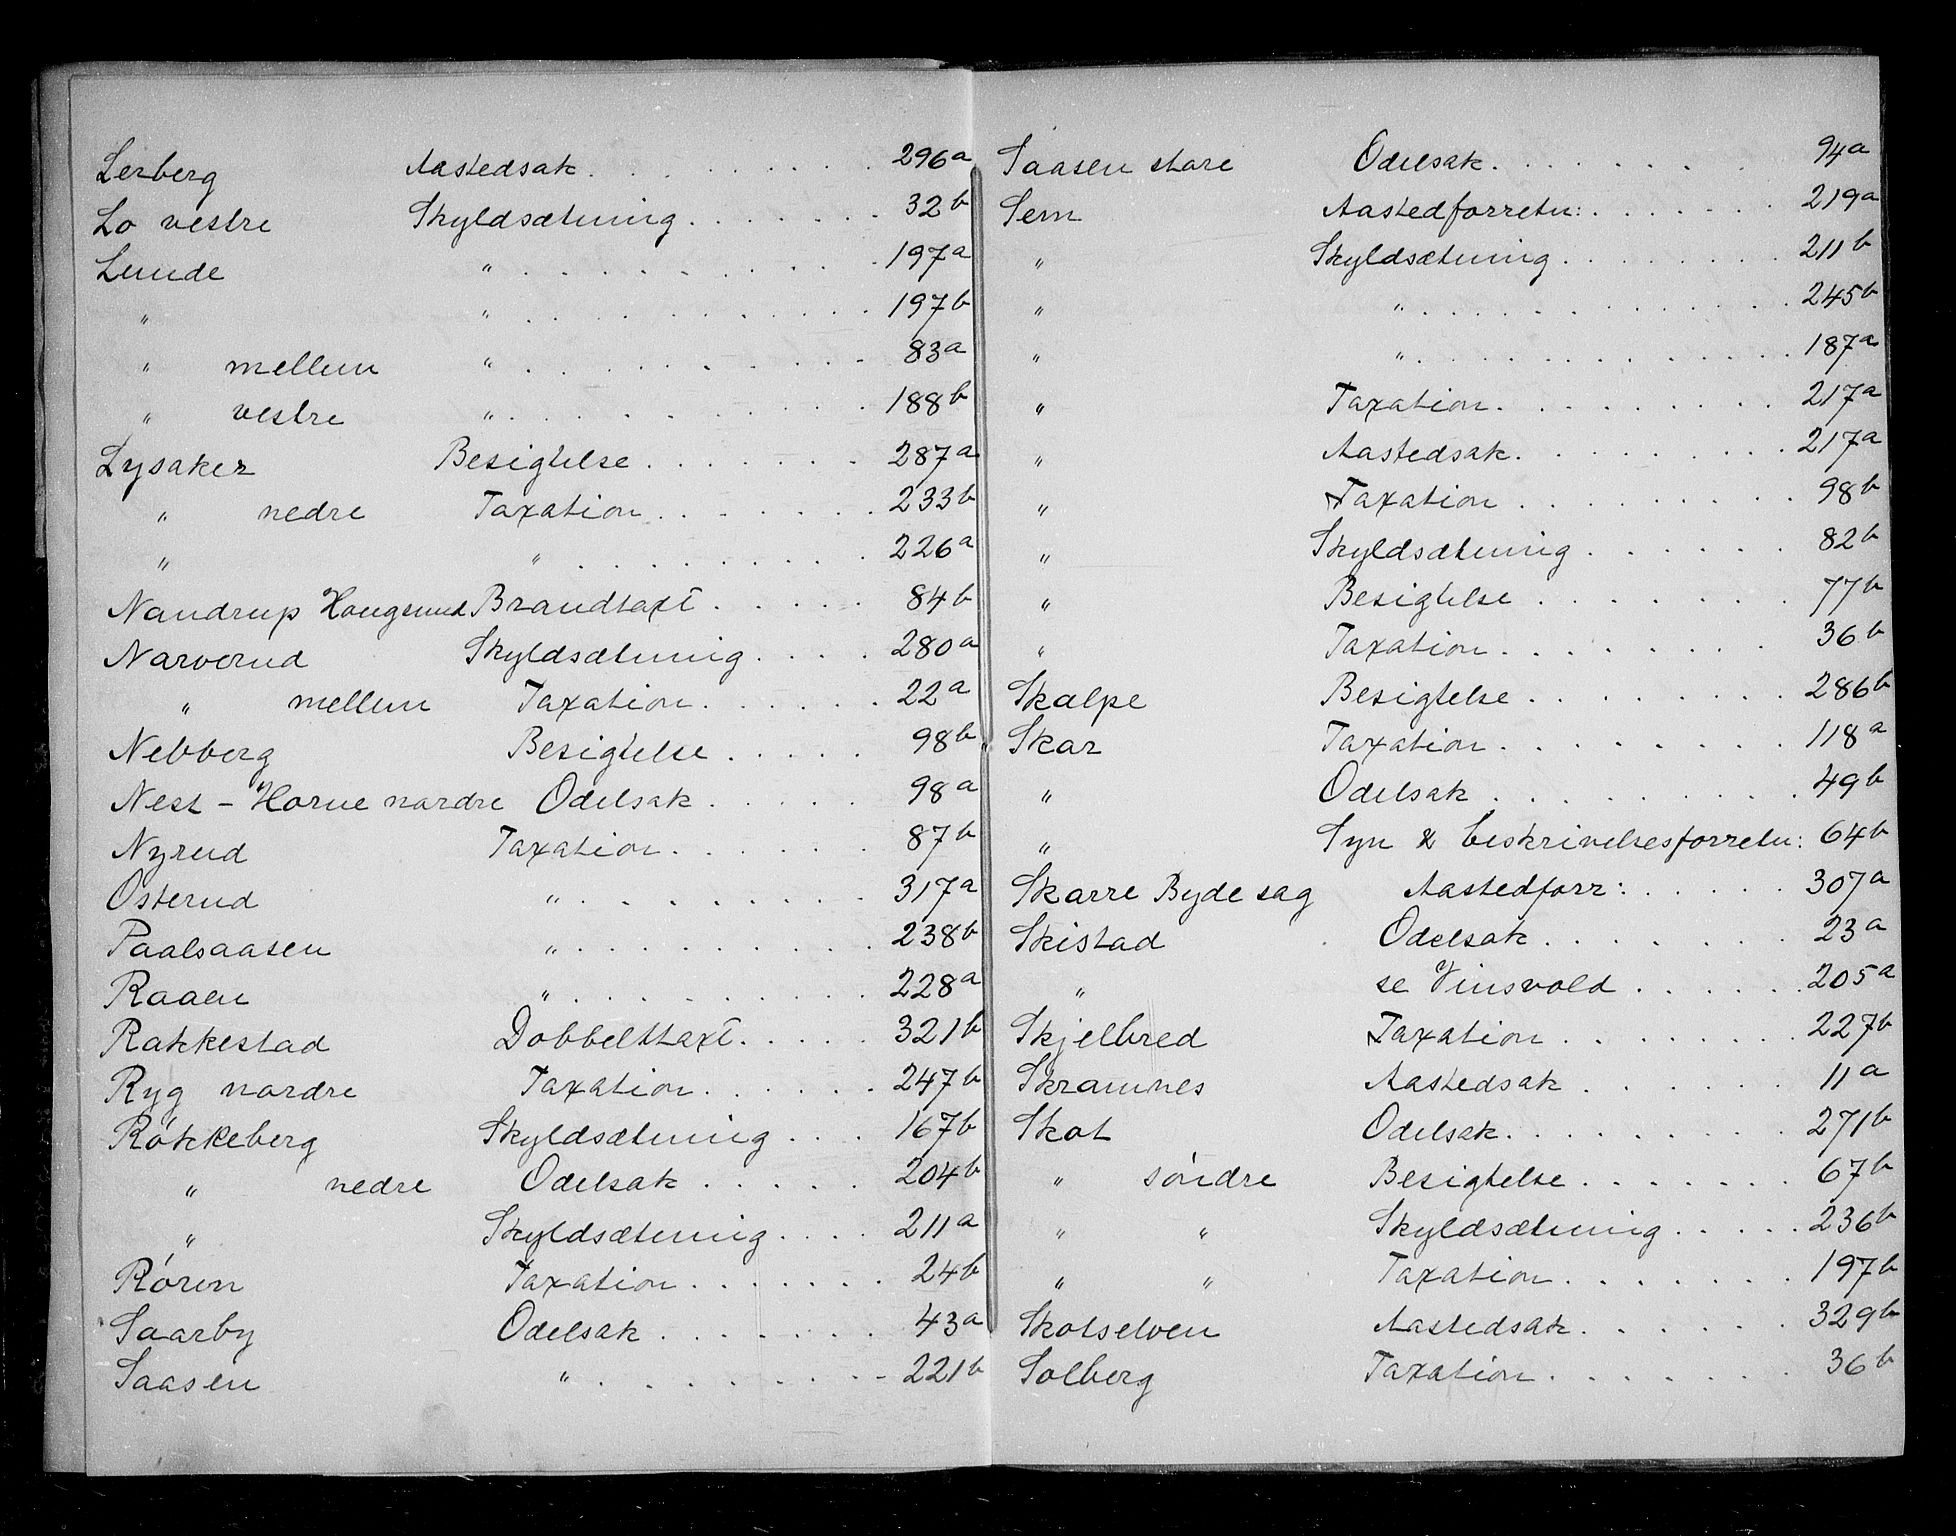 Lerberg Aastedsak. . . . . . . . 296a
Lo vestre Skyldsætning. . . . . . . 32b
Lunde " . . . . . . . . . . 197a
" " . . . . . . . . . . 197b
" mellum " . . . . . . . . . 83a
" vestre " . . . . . . . . . . 188b
Lysaker Besigtelse . . . . . . . 287a
" nedre Taxation . . . . . . . 233b
" " . . . . . . . . 226a
Nandrup Hougsund Brandtaxt . . . . . 84b
Narverud Skyldsætning . . . . 280a
" mellum Taxation . . . . . . 22a
Nebberg Besigtelse . . . . . 98b
Nest - Horne nordre Odelsak . . . . . 98a
Nyrud Taxation . . . . . . 87b
Osterud " . . . . . . . . 317a
Paalsaasen " . . . . . . . . 238b
Raaen " . . . . . . . . 228a
Rakkestad Dobbelttaxt . . . . . 321b
Ryg nordre Taxation . . . . . . 247b
Rökkeberg Skyldsætning . . . . 167b
" nedre Odelsak . . . . . 204b
" Skyldsætning . . . . 211a
Rören Taxation . . . . . . . 24b
Saarby Odelsak . . . . . . . 43a
Saasen " . . . . . . . . 221b
Saasen store Odelsak. . . . . . . 94a
Sem Aastedforretn: . . . . . . . 219a
" Skyldsætning . . . . . . . . 211b
" " . . . . . . . . . . 245b
" " . . . . . . . . . . 187a
" Taxation . . . . . . . . 217a
" Aastedsak. . . . . . . . . 217a
" Taxation . . . . . . . . 98b
" Skyldsætning . . . . . . 82b
" Besigtelse . . . . . . . . 77b
" Taxation . . . . . . . . 36b
Skalpe Besigtelse . . . . . . . . 286b
Skar Taxation . . . . . . . . . 118a
" Odelsak . . . . . . . . . . 49b
" Syn & beskrivelsesforretn: 64b
Skarre Byde sag Aastedforr: . . . . . 307a
Skistad Odelsak . . . . . . . 23a
" se Vinsvold . . . . . . 205a
Skjelbred Taxation . . . . . . . . 227b
Skramnes Aastedsak . . . . . . 11a
Skot Odelsak. . . . . . . . . . 271b
" söndre Besigtelse . . . . . . . 67b
" " Skyldsætning . . . . . 236b
" " Taxation . . . . . . . 197b
Skotselven Aastedsak. . . . . . . 329b
Solberg Taxation . . . . . . . 36b